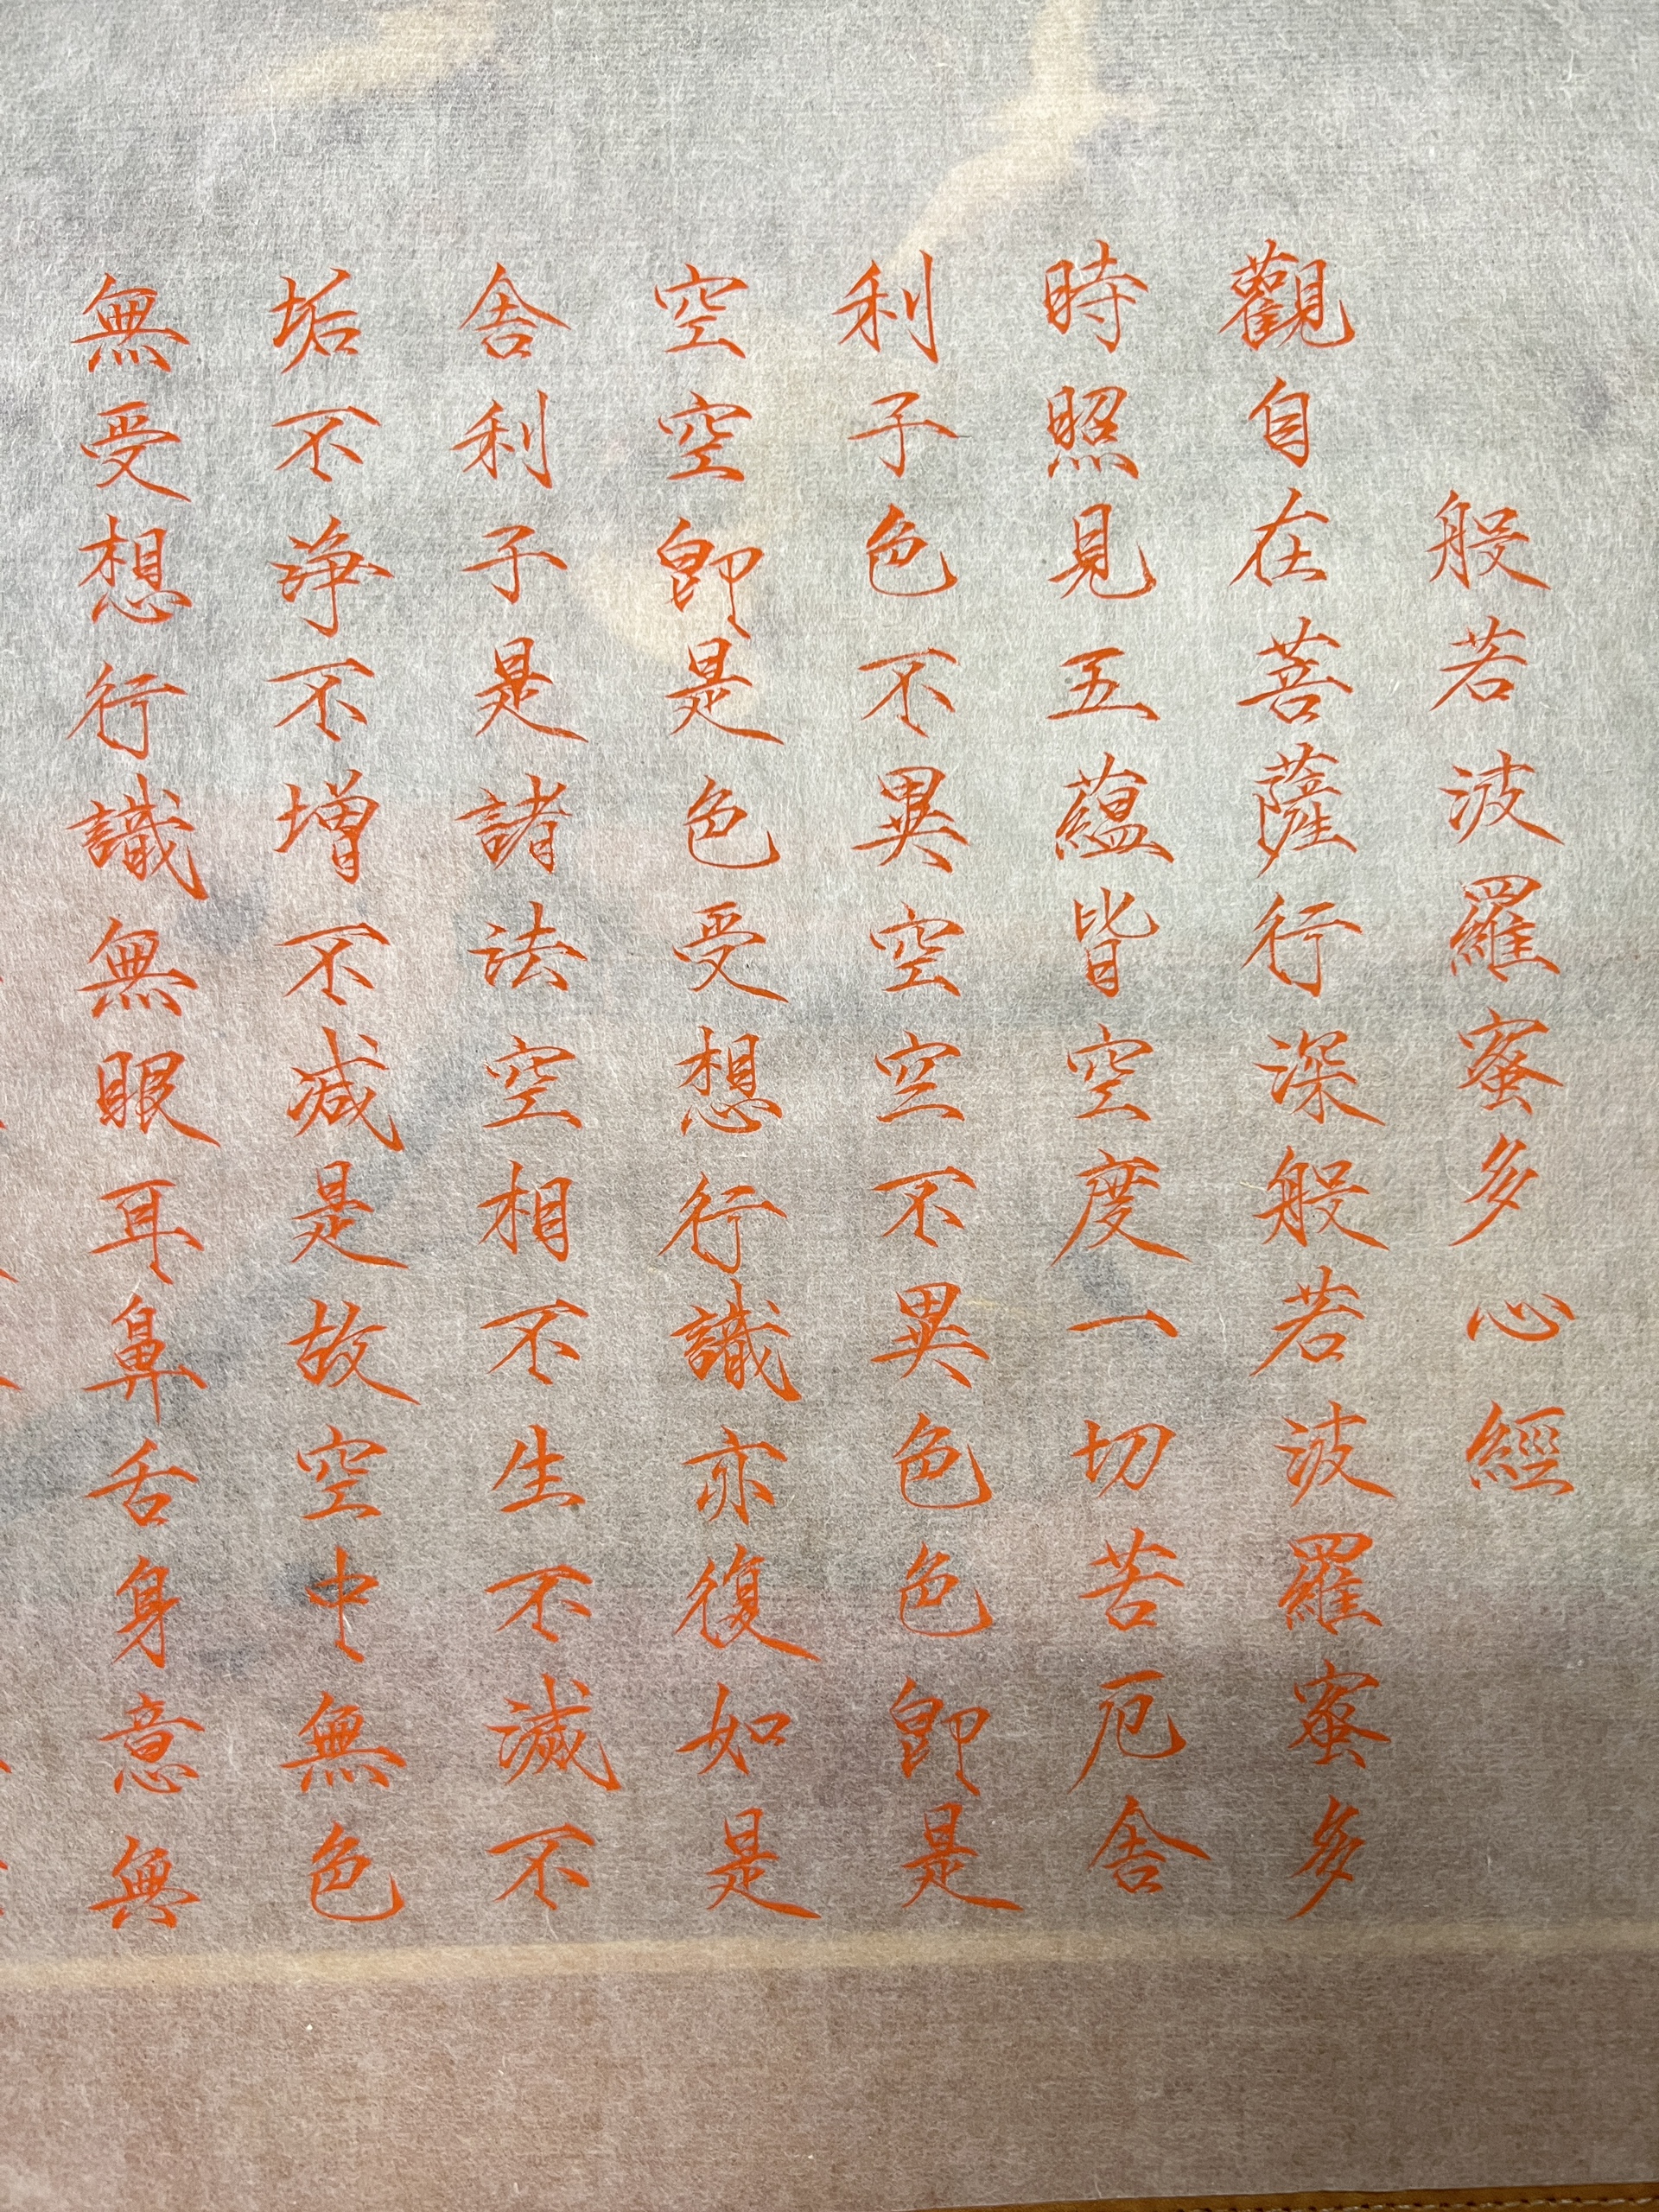 般若波羅蜜多心經
觀自在菩薩行深般若波羅蜜多
時照見五蘊皆空度一切苦厄舍
利子色不異空空不異色色即是
空空即是色受想行識亦復如是
舍利子是諸法空相不生不滅不
垢不淨不增不減是故空中無色
無受想行識無眼耳鼻舌身意無